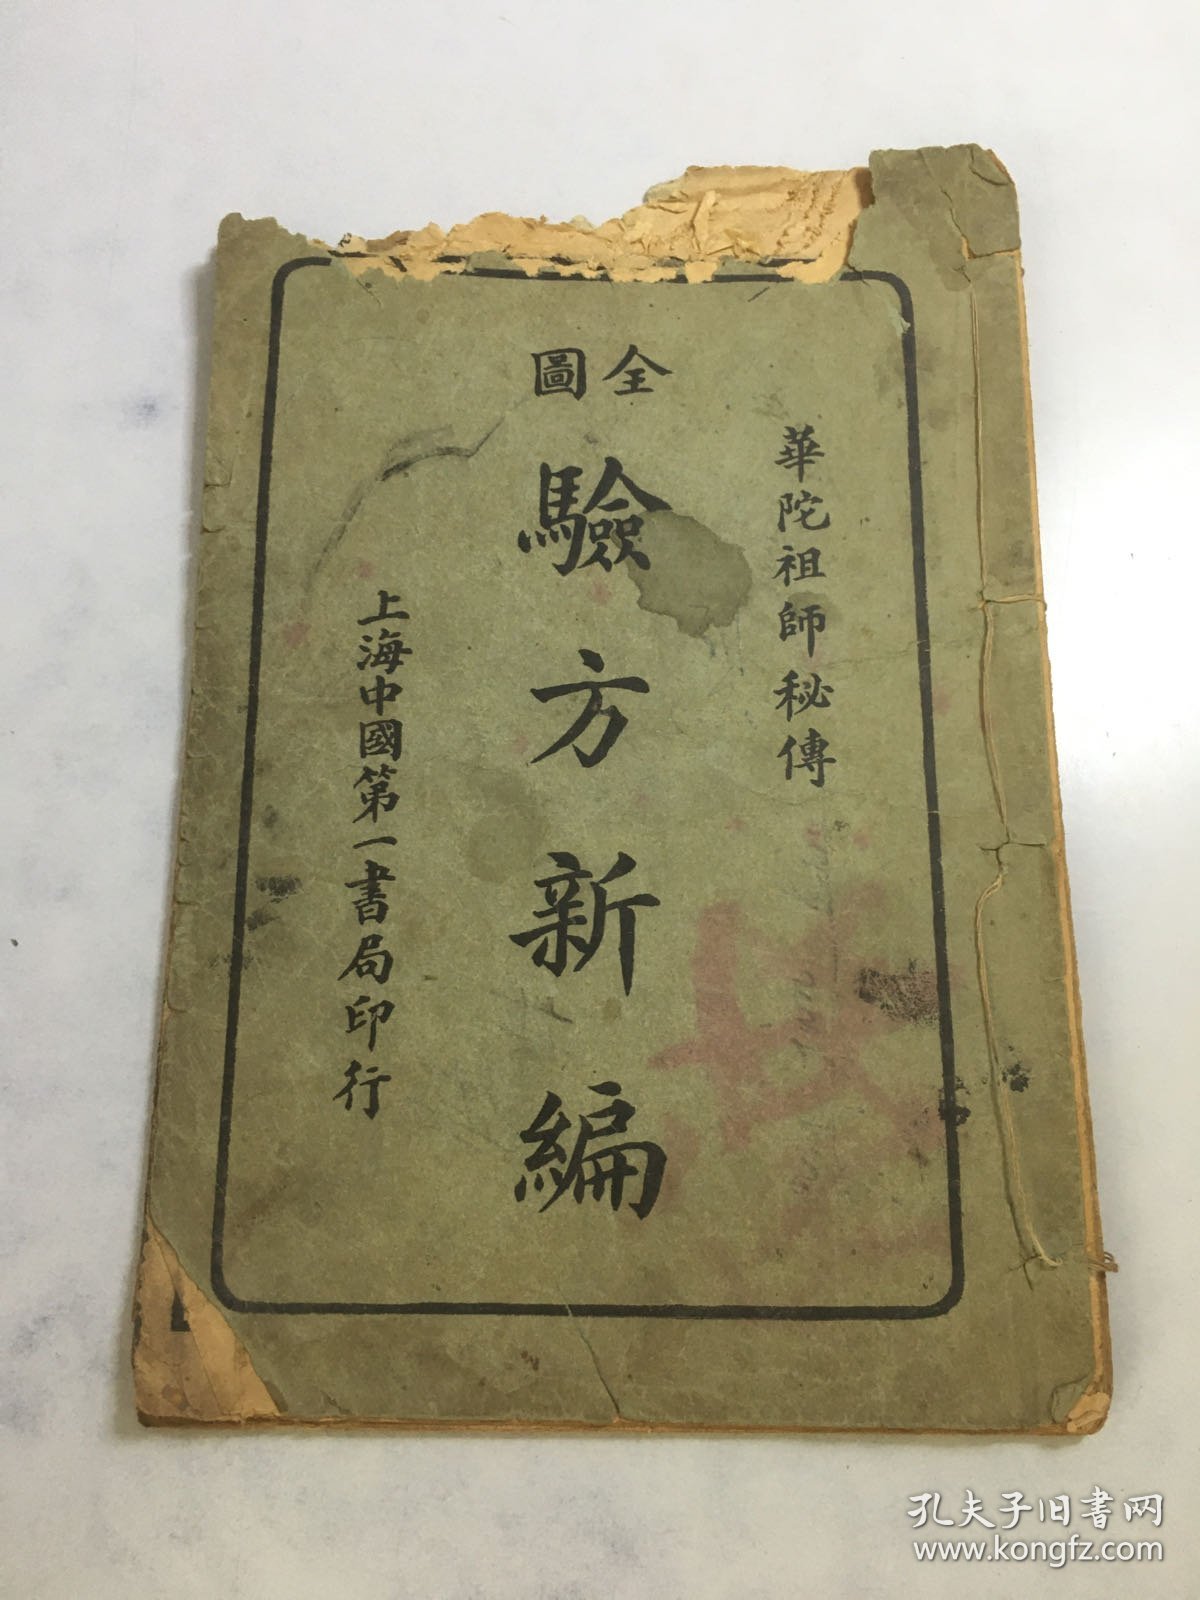 華陀祖師秘傳
全圖
驗方新編
上海中國第一書局印行
孔夫子旧書网
www.kongfz.com